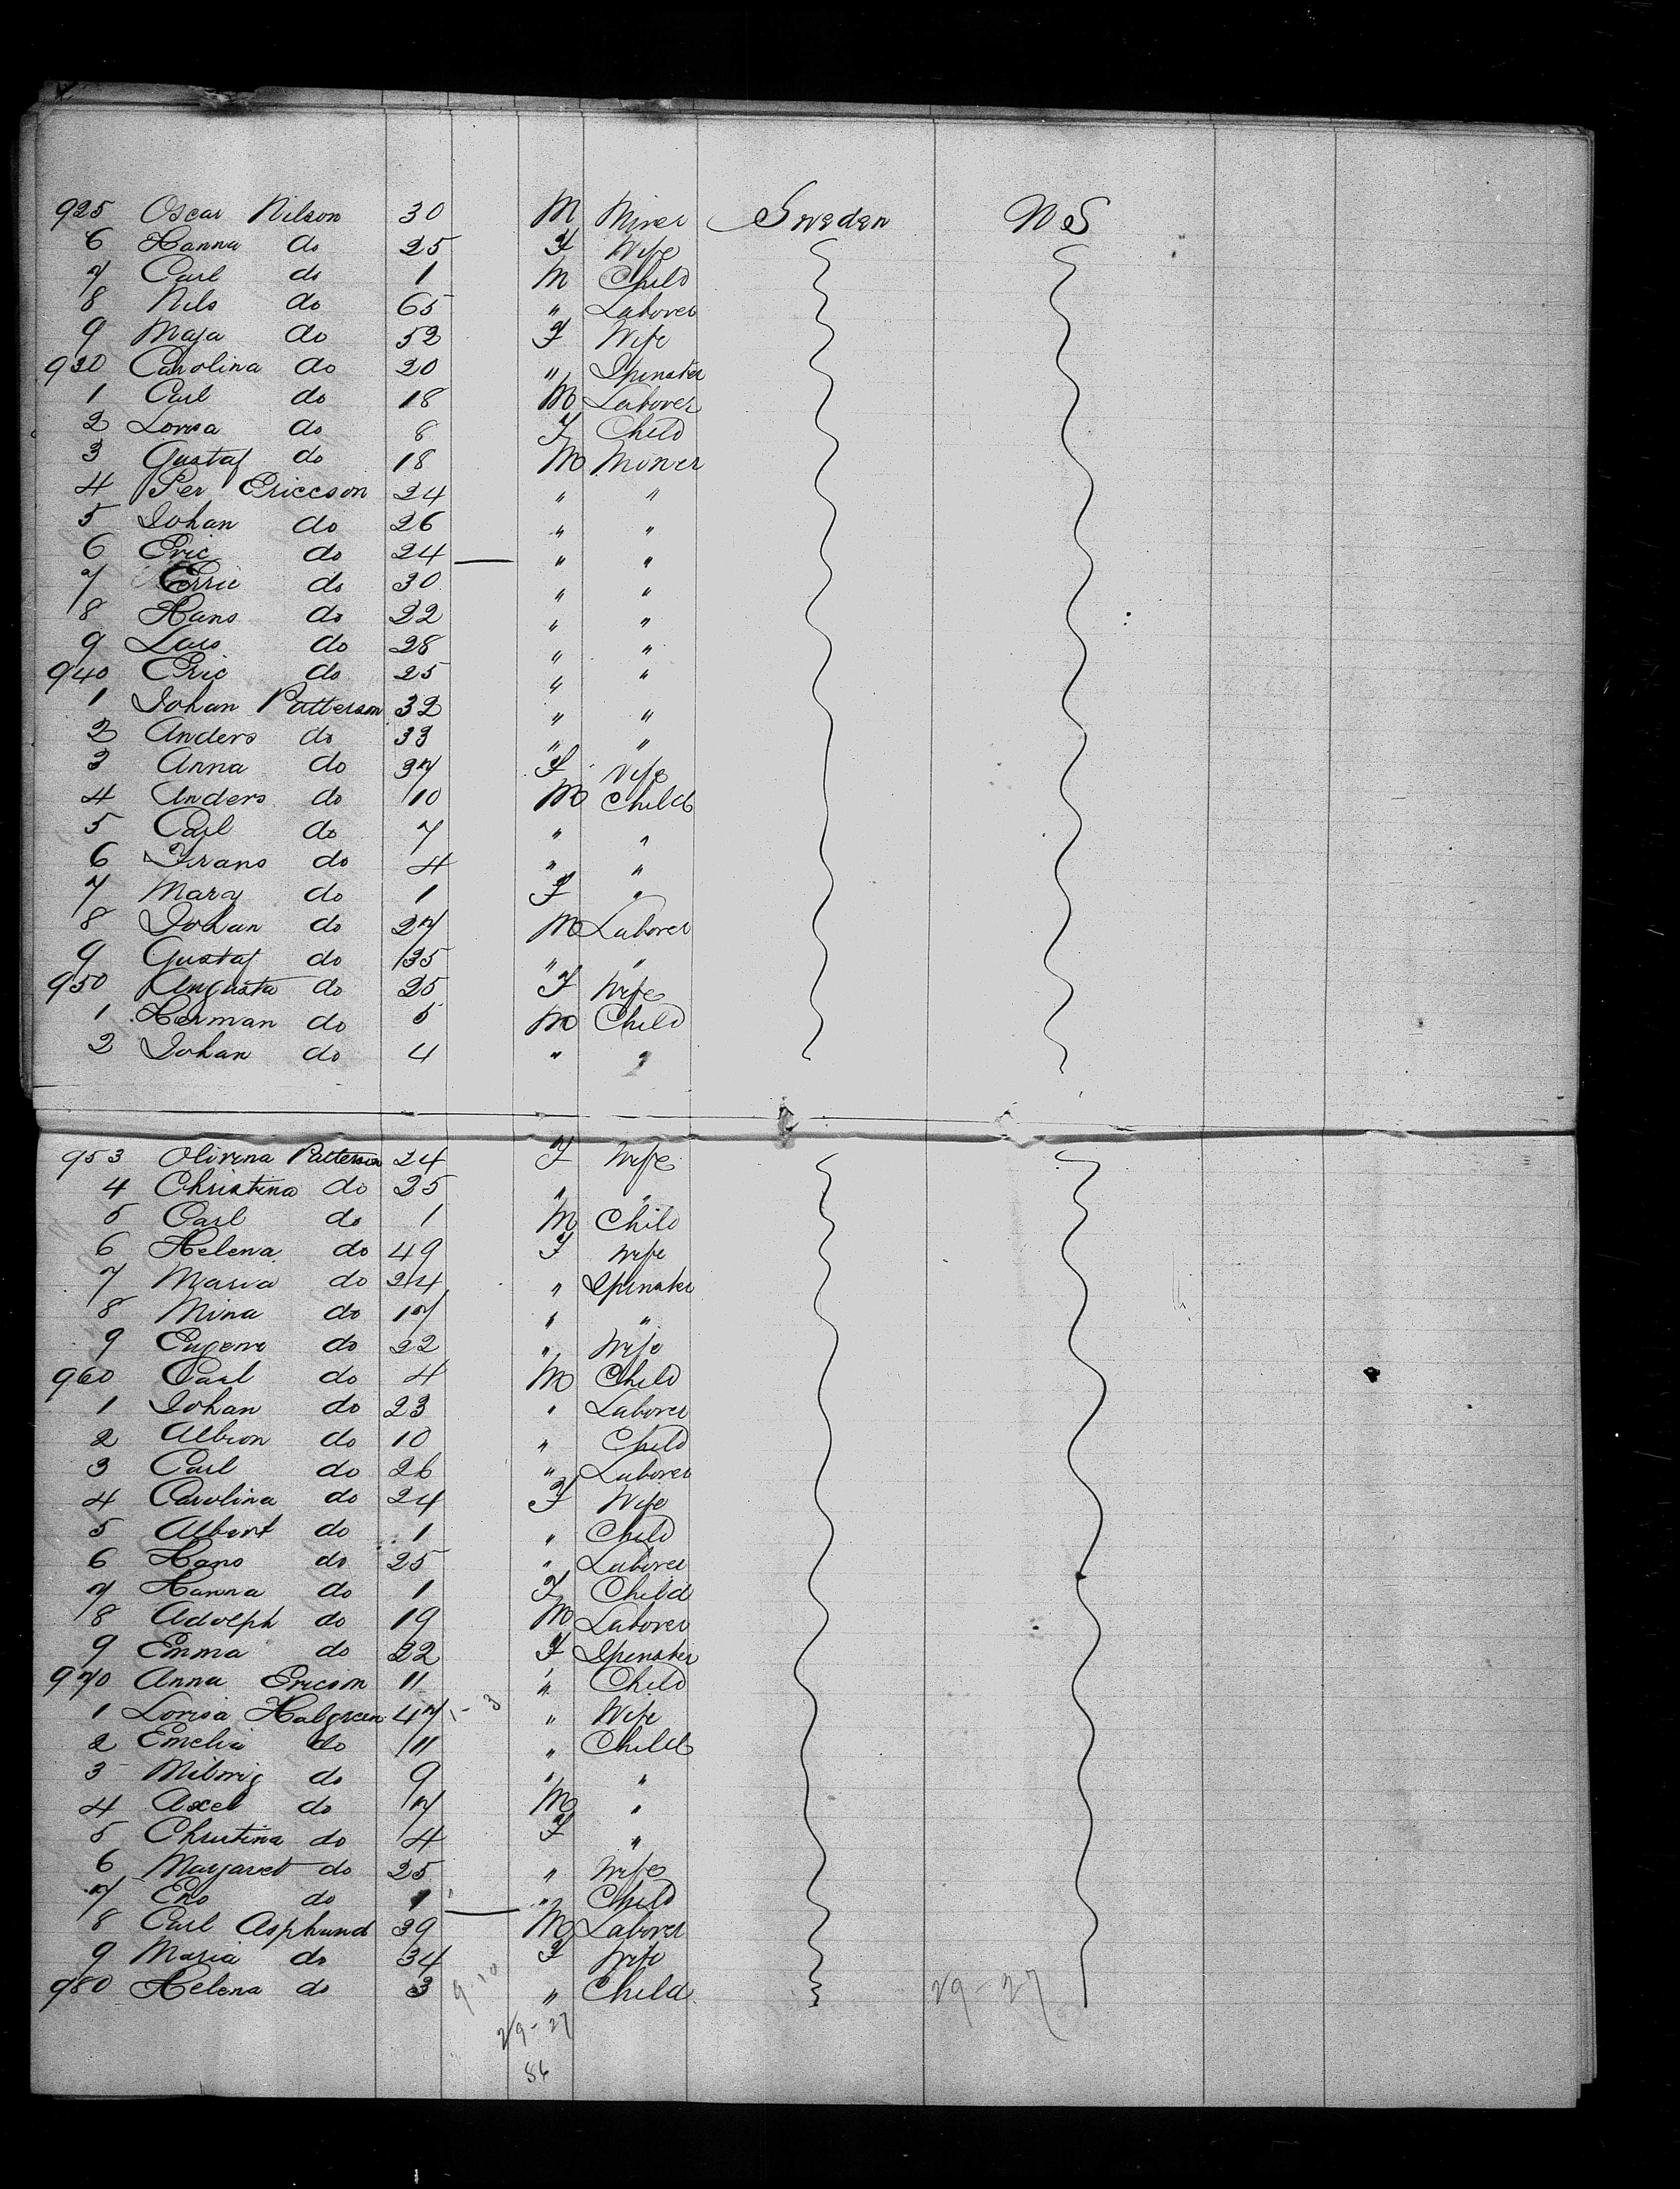 925 Oscar Nilson 30 M Miner Sweden U S
6 Hanna do 25 F Wife
7 Carl do 1 M Child
8 Nils do 65 " Laborer
9 Maja do 52 F Wife
930 Carolina do 20 " Spinster
1 Carl do 18 M Laborer
2 Lovisa do 8 F Child
3 Gustaf do 18 M Miner
4 Per Ericcson 24 " "
5 Johan do 26 " "
6 Eric do 24 " "
7 Erric do 30 " "
8 Hans do 22 " "
9 Lars do 28 " "
940 Eric do 25 " "
1 Johan Patterson 32 " "
2 Anders do 33 " "
3 Anna do 37 F Wife
4 Anders do 10 M Child
5 Carl do 7 " "
6 Frans do 4 " "
7 Mary do 1 F "
8 Johan do 27 M Laborer
9 Gustaf do 35 " "
950 Augusta do 25 F Wife
1 Herman do 5 M Child
2 Johan do 4 " "
953 Olivina Patterson 24 F Wife
4 Christina do 25 " "
5 Carl do 1 M Child
6 Helena do 49 F Wife
7 Maria do 24 " Spinster
8 Mina do 17 " "
9 Eugene do 22 " Wife
960 Carl do 4 M Child
1 Johan do 23 " Laborer
2 Albion do 10 " Child
3 Carl do 26 " Laborer
4 Carolina do 24 F Wife
5 Albert do 1 " Child
6 Hans do 25 " Laborer
7 Hanna do 1 F Child
8 Adolph do 19 M Laborer
9 Emma do 22 F Spinster
970 Anna Ericson 11 " Child
1 Lovisa Halgreen 47 1-3 " Wife
2 Emelia do 11 " Child
3 do 9 " "
4 Axel do 7 M "
5 Christina do 4 F "
6 Margaret do 25 " Wife
7 do 1 " Child
8 Carl Asphund 39 M Laborer
9 Maria do 34 F Wife
980 Helena do 3 9-10 " Child 29-27
29-27
86